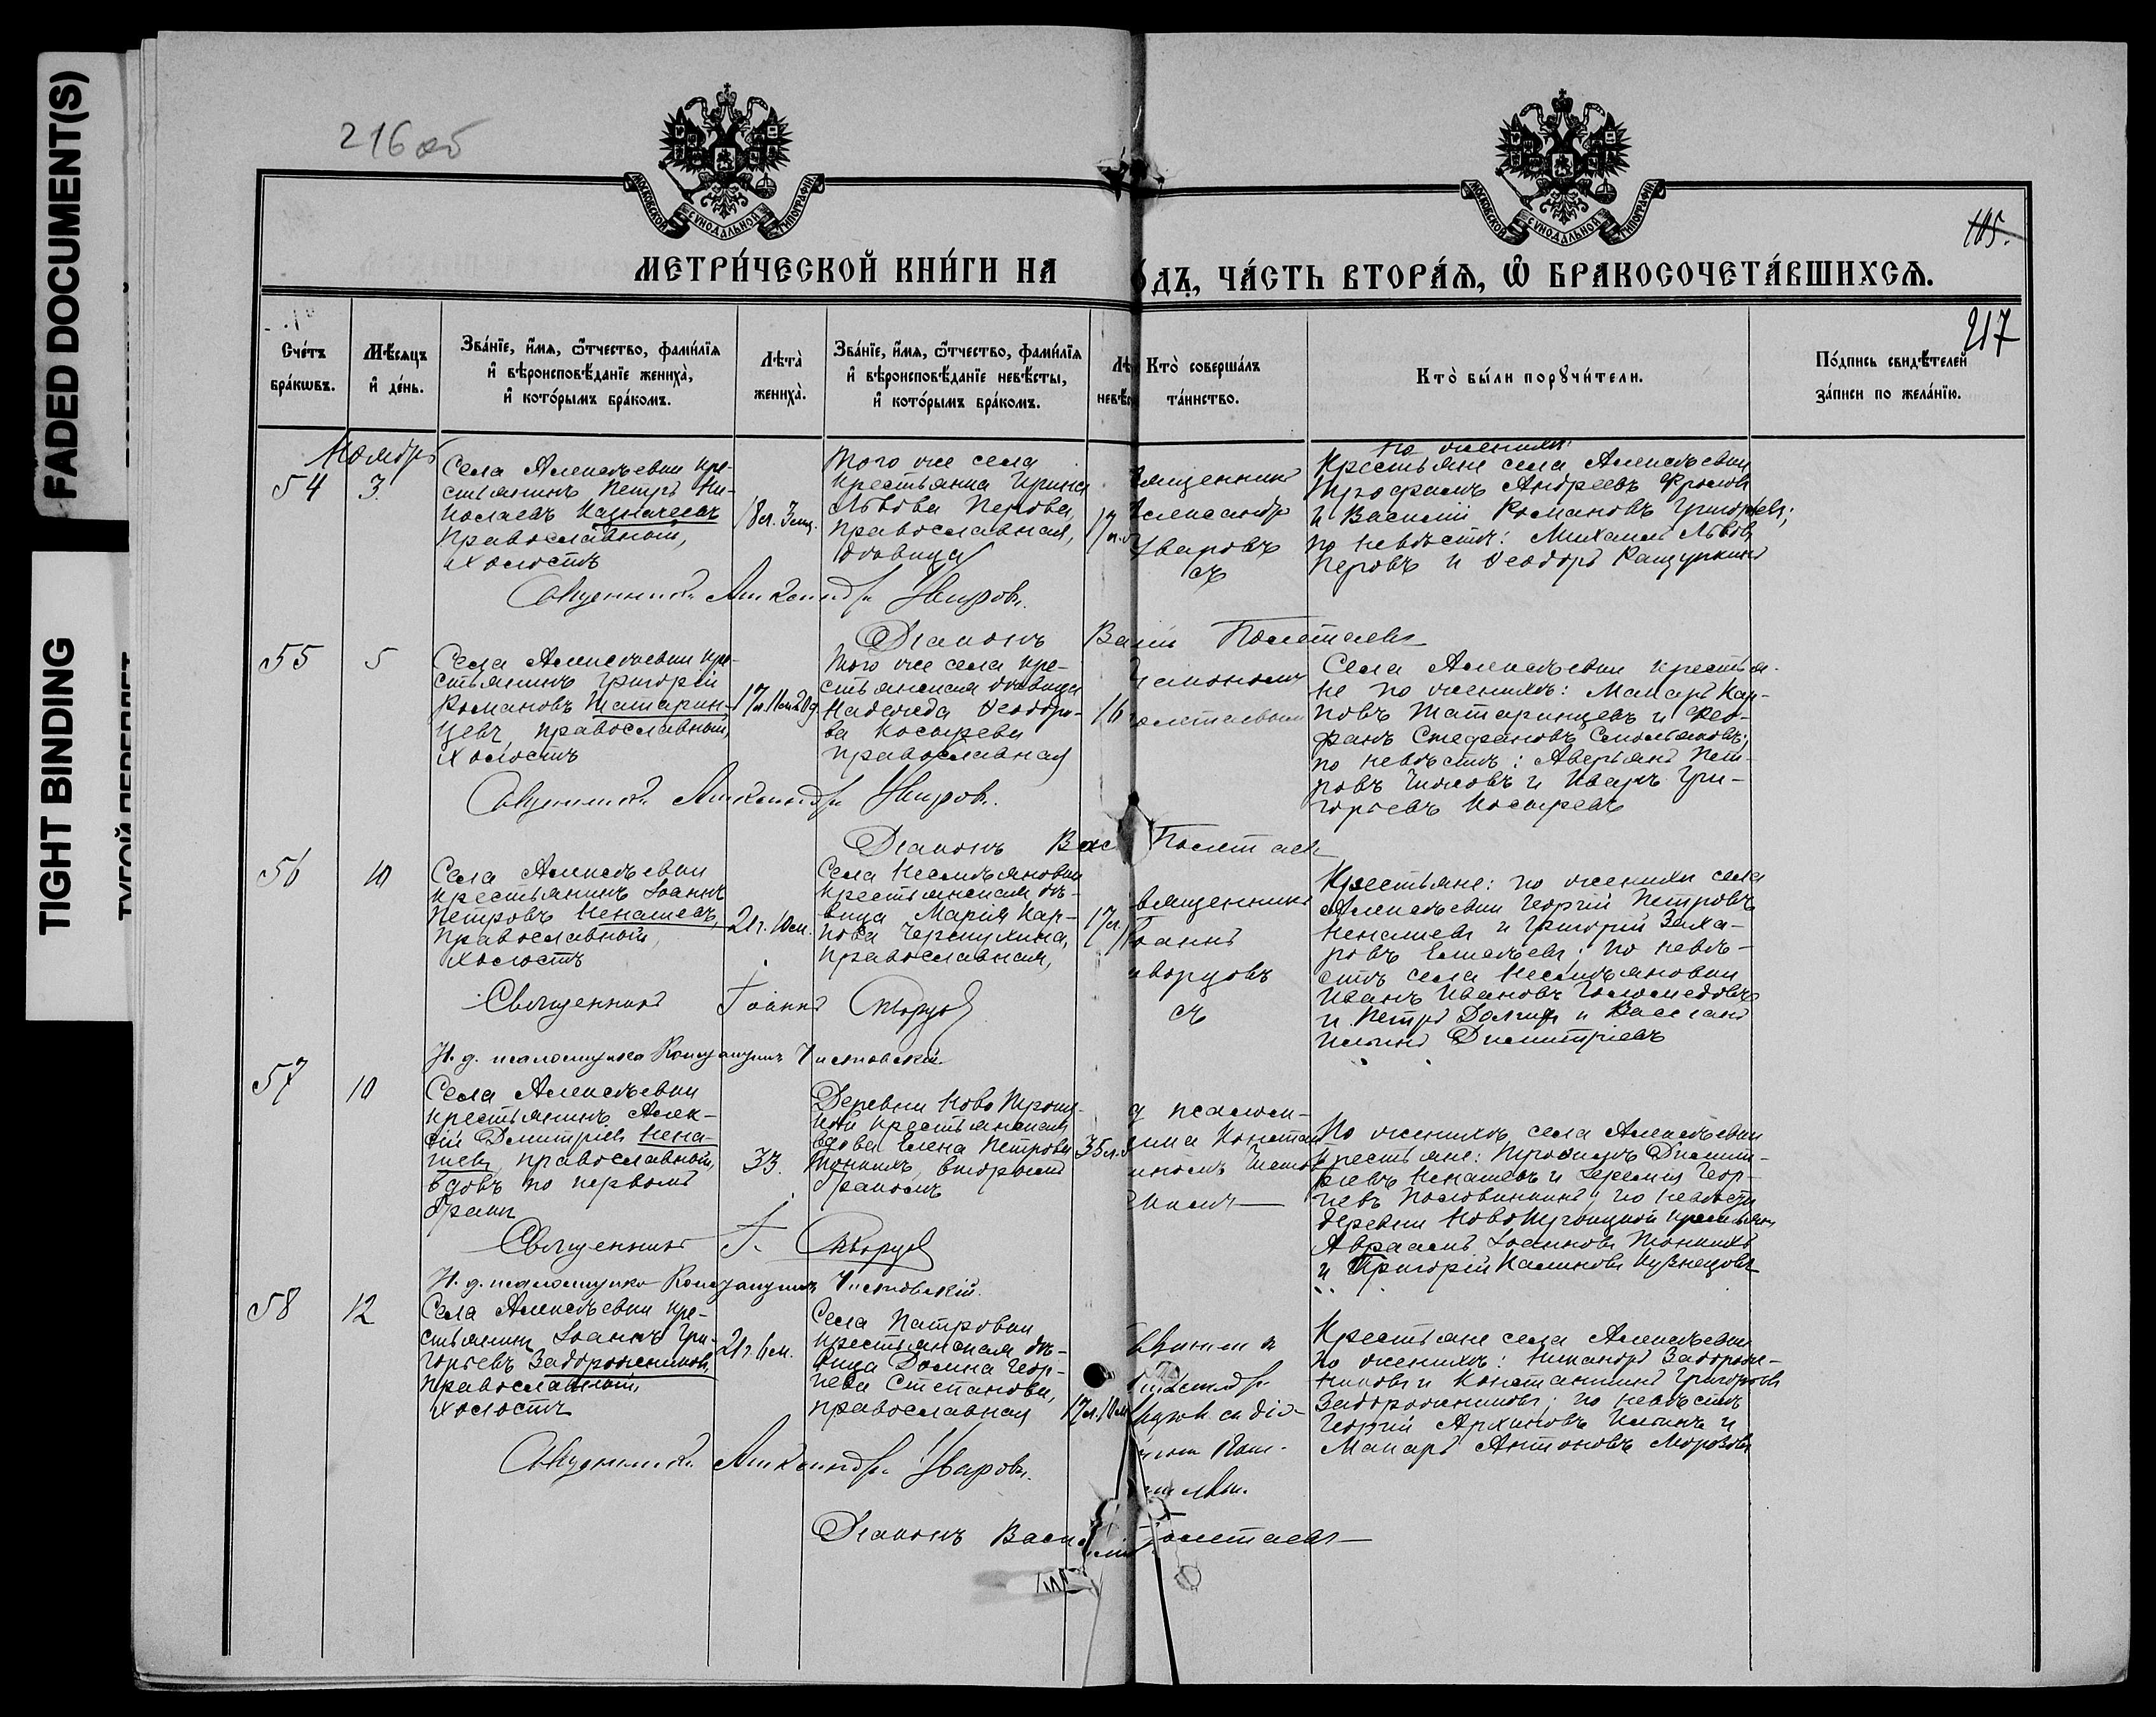 FADED DOCUMENT(S)
TIGHT BINDING
ТУГОЙ ПЕРЕПЛЕТ
216 об
105.
217
МОСКОВСКОЙ СѴНОДАЛЬНОЙ ТИПОГРАФІИ
МОСКОВСКОЙ СѴНОДАЛЬНОЙ ТИПОГРАФІИ
МЕТРИ́ЧЕСКОЙ КНИ́ГИ НА
О́ДЪ, ЧА́СТЬ ВТОРА́Ѧ, Ѡ҆ БРАКОСОЧЕТА́ВШИХСѦ.
Сче́тъ
бра́кѡвъ.
Мѣ́сѧцъ
и҆ де́нь.
Зва́нїе, и҆́мѧ, ѻ҆́тчество, фами́лїѧ
и҆ вѣроисповѣ́данїе жениха̀,
и҆ кото́рымъ бра́комъ.
Лѣта̀
жениха̀.
Зва́нїе, и҆́мѧ, ѻ҆́тчество, фами́лїѧ
и҆ вѣроисповѣ́данїе невѣ́сты,
и҆ кото́рымъ бра́комъ.
Лѣ
невѣ́с
Кто̀ соверша́лъ
та́инство.
Кто̀ бы́ли порꙋчи́тели.
По́дпись свидѣ́телей
за́писи по жела́нїю.
Ноябрь
54
3
Села Алексѣевки кре-
стьянинъ Петръ Ни-
колаевъ Казначеевъ
православный,
холостъ
18 л. 3 мц.
Того же села
крестьянка Ирина
Львова Перова,
православная,
дѣвица
17 л.
вященникъ
Александръ
Уваровъ
съ
по женихѣ:
Крестьяне села Алексѣевки
Андреевъ Фроловъ
и Василій Романовъ Григорьевъ;
по невѣстѣ: Михаилъ Львовъ
Перовъ и Ѳеодоръ
Священникъ Александръ Уваровъ.
Діаконъ Васил Полетаевъ
55
5
Села Алексѣевки кре-
стьянинъ Григорій
Романовъ Татарин-
цевъ, православный,
холостъ
17 л. 11 м. 20 д
Того же села кре-
стьянская дѣвица
Надежда Ѳеодоро-
ва Косырева
православная
16
олетаевымъ
Села Алексѣевки крестья-
не по женихѣ: Макаръ Кар-
повъ Татаринцевъ и Ѳео-
фанъ Стефановъ
по невѣстѣ: Аверьянъ Пет-
ровъ и Иванъ Гри-
горьевъ Косыревъ
Священникъ Александръ Уваровъ.
Діаконъ Вас Полетаевъ
56
10
Села Алексѣевки
крестьянинъ Іоаннъ
Петровъ Ненашевъ,
православный,
холостъ
21 г. 10 м.
Села Несмѣяновки
крестьянская дѣ-
вица Марія Кар-
пова Черепухина,
православная,
17 л.
вященникъ
Іоаннъ
ворцовъ
съ
Крестьяне: по женихѣ села
Алексѣевки Георгій Петровъ
Ненашевъ и Григорій Заха-
ровъ; по невѣ-
стѣ села Несмѣяновки
Иванъ Ивановъ
и Петръ и
Димитріевъ
Священникъ Іоаннъ Скворцовъ
И. д. псаломщика Константинъ Чистовскій
57
10
Села Алексѣевки
крестьянинъ Алек-
сій Дмитріевъ Нена-
шевъ, православный,
вдовъ по первомъ
бракѣ
33.
Деревни Ново Троиц-
кой крестьянская
вдова Елена Петрова
Тонкихъ, вторымъ
бракомъ
35 л.
д псалом-
щика Констан
По женихѣ села Алексѣевки
крестьяне: Трофимъ Димит-
ріевъ Ненашевъ и Іеремія Геор-
гіевъ Половинкинъ; по невѣстѣ
деревни НовоТроицкой крестьяне
Авраамъ Іоанновъ Тонкихъ
и Григорій Калиновъ Кузнецовъ
Священникъ І. Скворцовъ
И. д. псаломщика Константинъ Чистовскій.
58
12
Села Алексѣевки кре-
стьянинъ Іоаннъ Гри-
горьевъ Задорожниковъ,
православный,
холостъ
21 г. 6 м.
Села Петровки
крестьянская дѣ-
вица Домна Геор-
гіева Степанова,
православная
17 л. 10 м
Крестьяне села Алексѣевки
по женихѣ: Никаноръ Задорож-
никовъ и Константинъ Григорьевъ
Задорожниковъ; по невѣстѣ
Георгій Архиповъ Ильинъ и
Макаръ Антоновъ Морозовъ
Священникъ Александръ Уваровъ.
Діаконъ Васи лій Полетаевъ